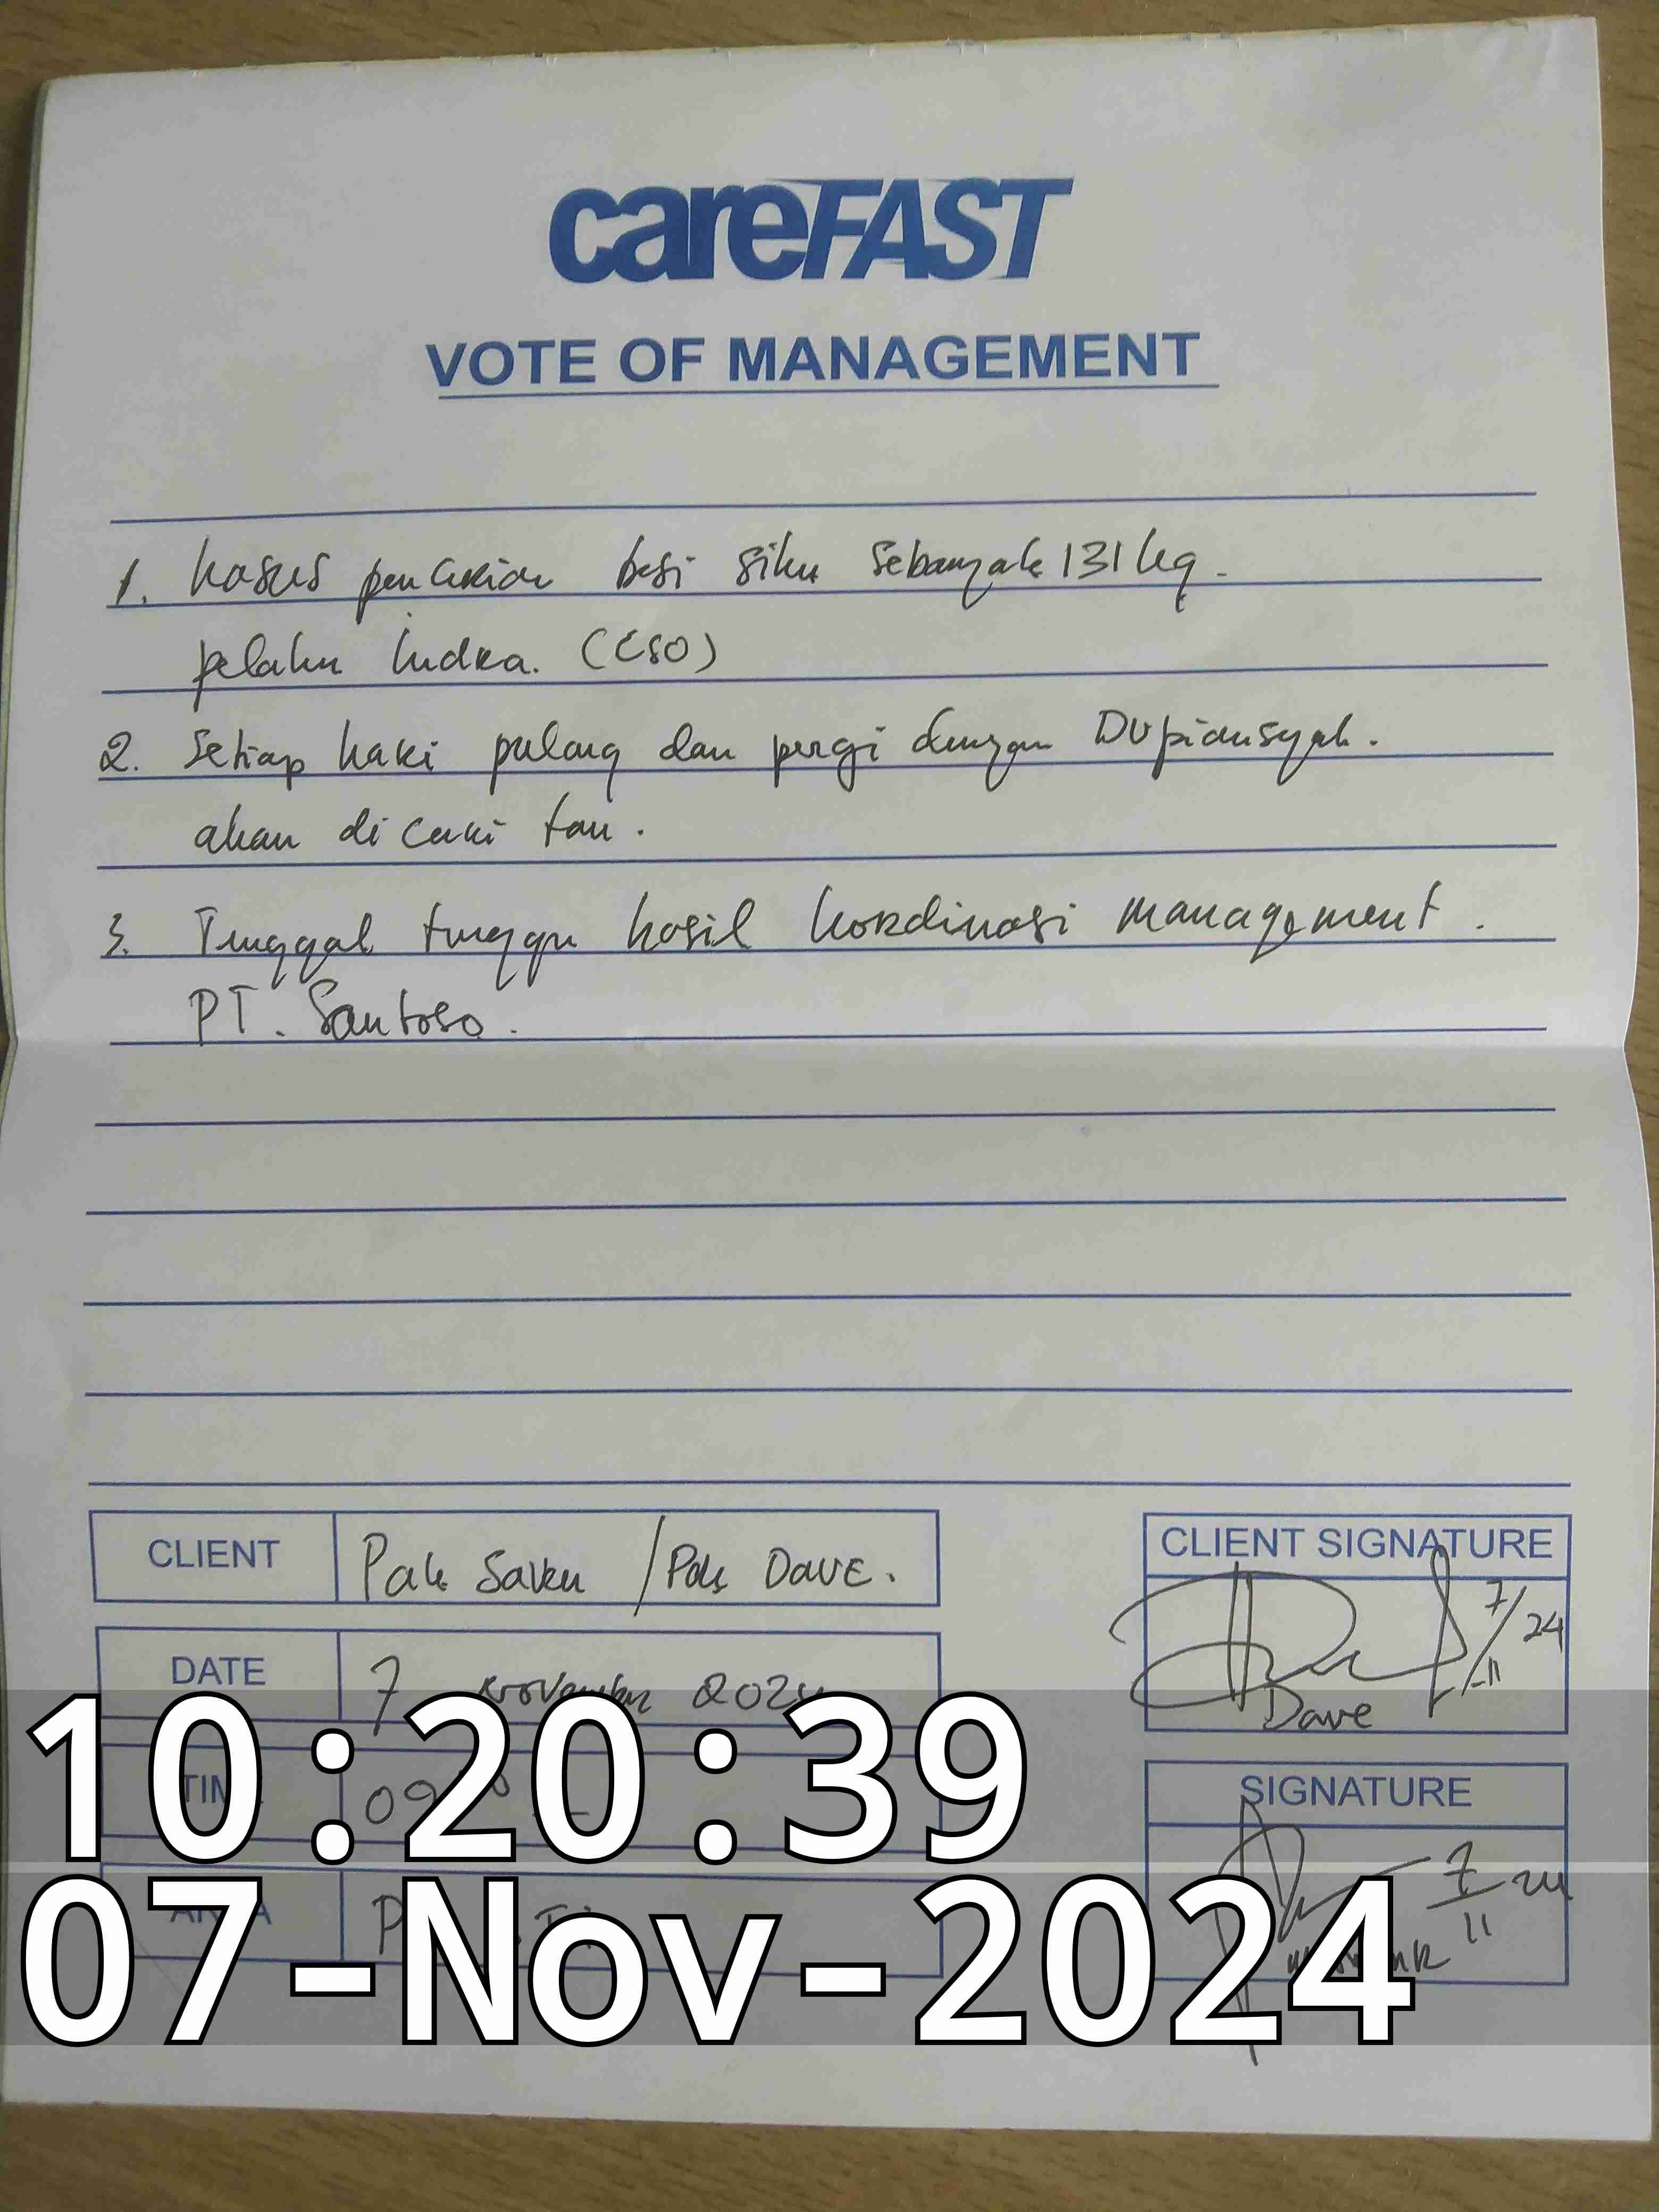 careFAST
VOTE OF MANAGEMENT
1. Kasus pencurian besi siku sebanyak 131 kg.
pelaku Indra. (CSO)
2. Setiap hari pulang dan pergi dengan Dupiansyah.
akan di cari tau.
3. Tinggal tunggu hasil kordinasi management.
PT. Santoso.
CLIENT Pak / Pak DAVE.
CLIENT SIGNATURE
7/11 24
Dave
DATE 7 November 2024
TIME 09
SIGNATURE
7/11 24
AREA
10:20:39
07-Nov-2024